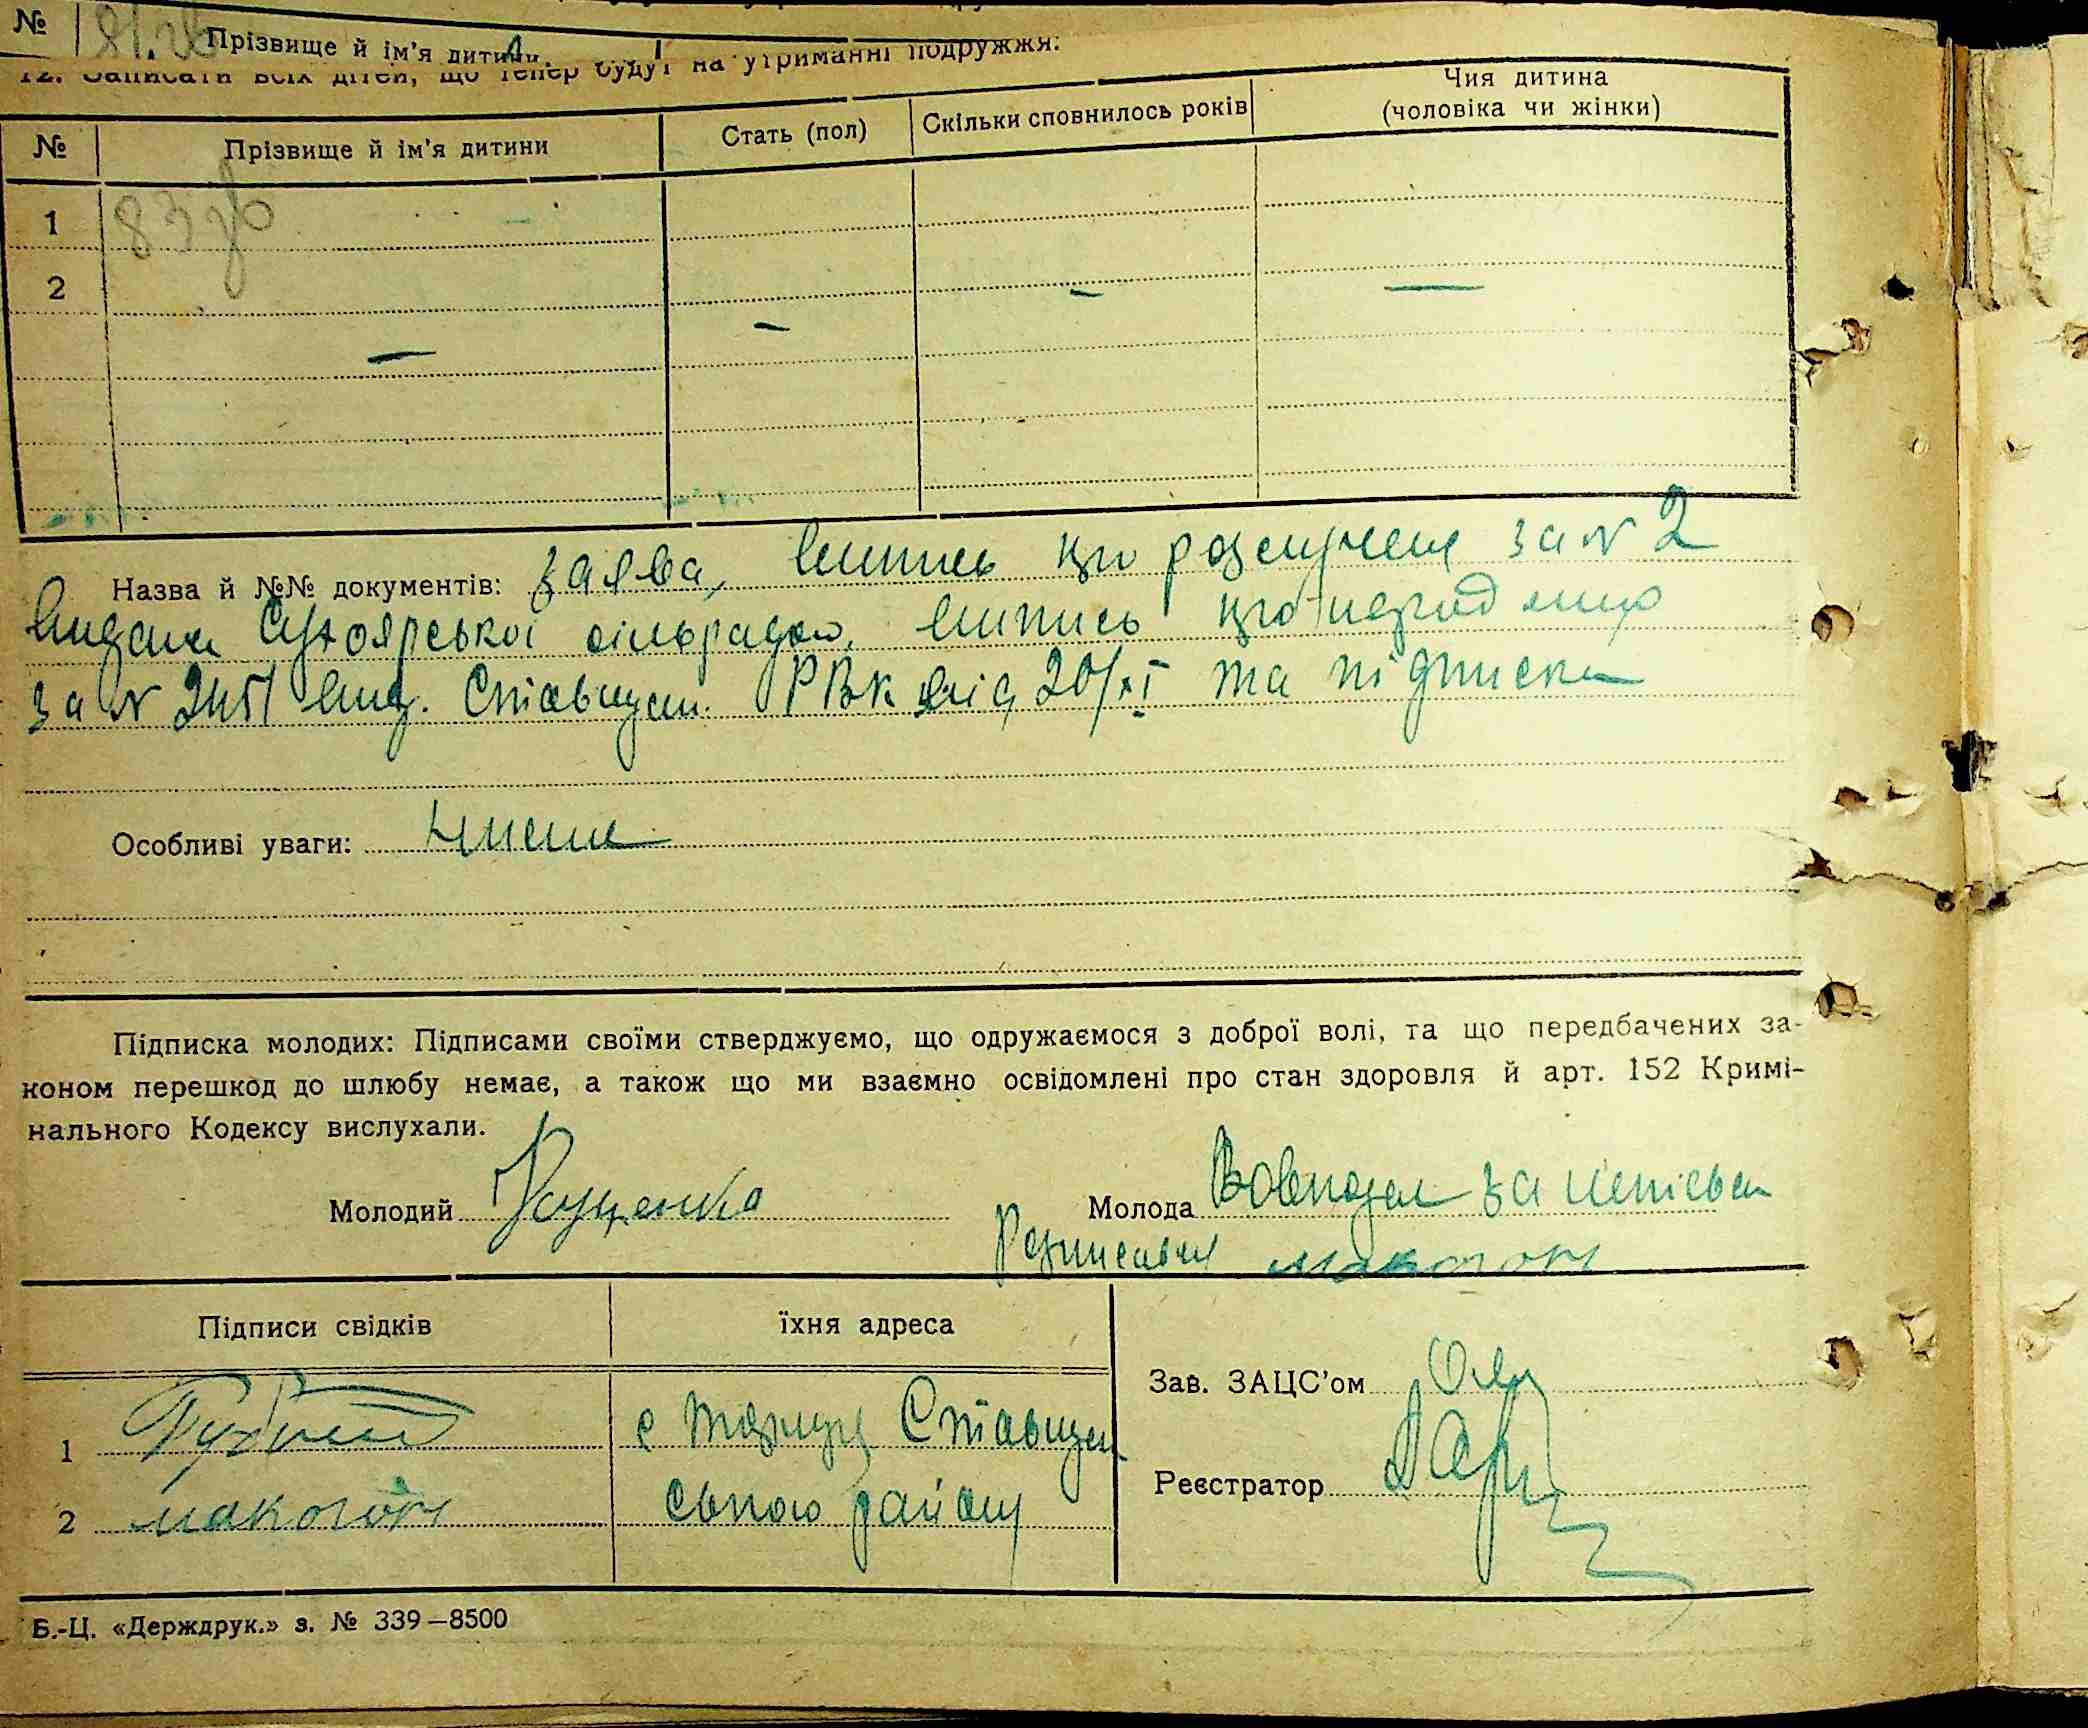 № Прізвище й ім'я дитини.
12. Записати всіх дітей, що тепер будуть на утриманні подружжя:
№ Прізвище й ім'я дитини Стать (пол) Скільки сповнилось років Чия дитина (чоловіка чи жінки)
1 83
2
— — — —
Назва й №№ документів: заява, випись про розлучення за № 2
видана Сухоярською сільрадою, випись про народження
за № 2451 вид. Ставищен. РВК від 20/XI та підписка
Особливі уваги: немає
Підписка молодих: Підписами своїми стверджуємо, що одружаємося з доброї волі, та що передбачених за-
коном перешкод до шлюбу немає, а також що ми взаємно освідомлені про стан здоровля й арт. 152 Кримі-
нального Кодексу вислухали.
Молодий Ющенко Молода
Розписався Макогон
Підписи свідків їхня адреса
Зав. ЗАЦС'ом
1 с Ставищен
Реєстратор
2 Макогон ського району
Б.-Ц. «Держдрук.» з. № 339—8500